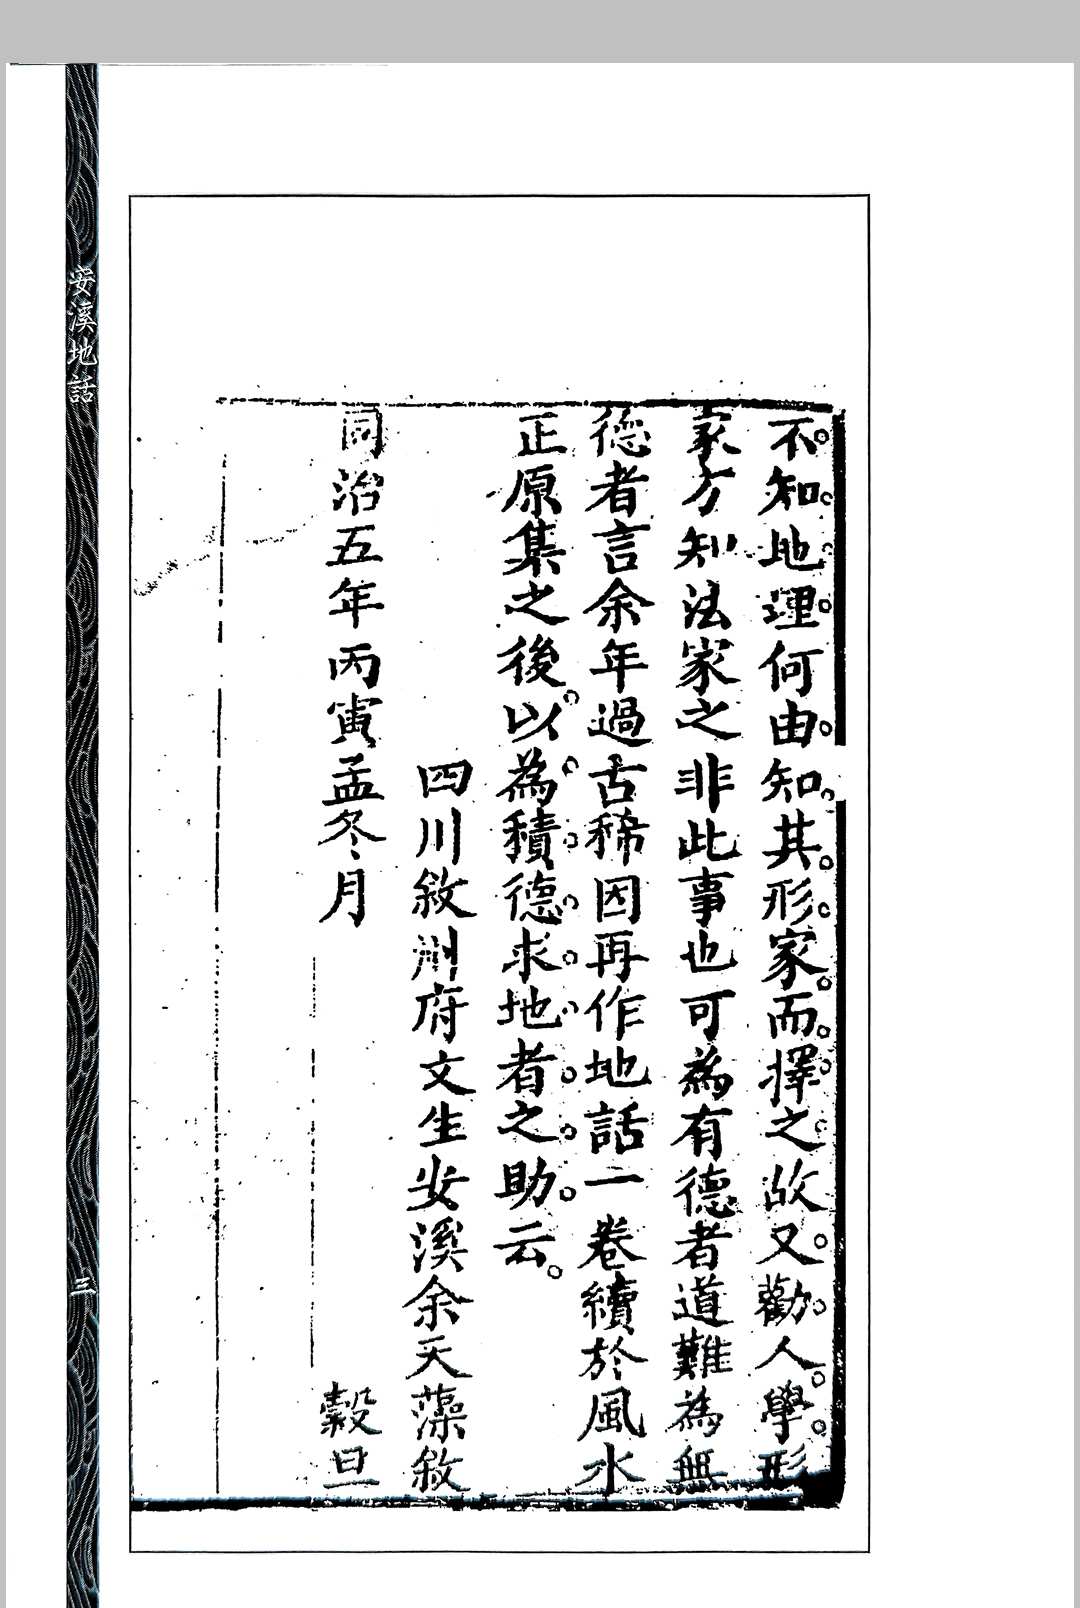 不知地理何由知其形家而擇之故又勸人學形
家方知法家之非此事也可為有德者道難為無
德者言余年過古稀因再作地話一卷續於風水
正原集之後以為積德求地者之助云
四川敘州府文生安溪余天藻敘
同治五年丙寅孟冬月 穀旦
安溪地話
三